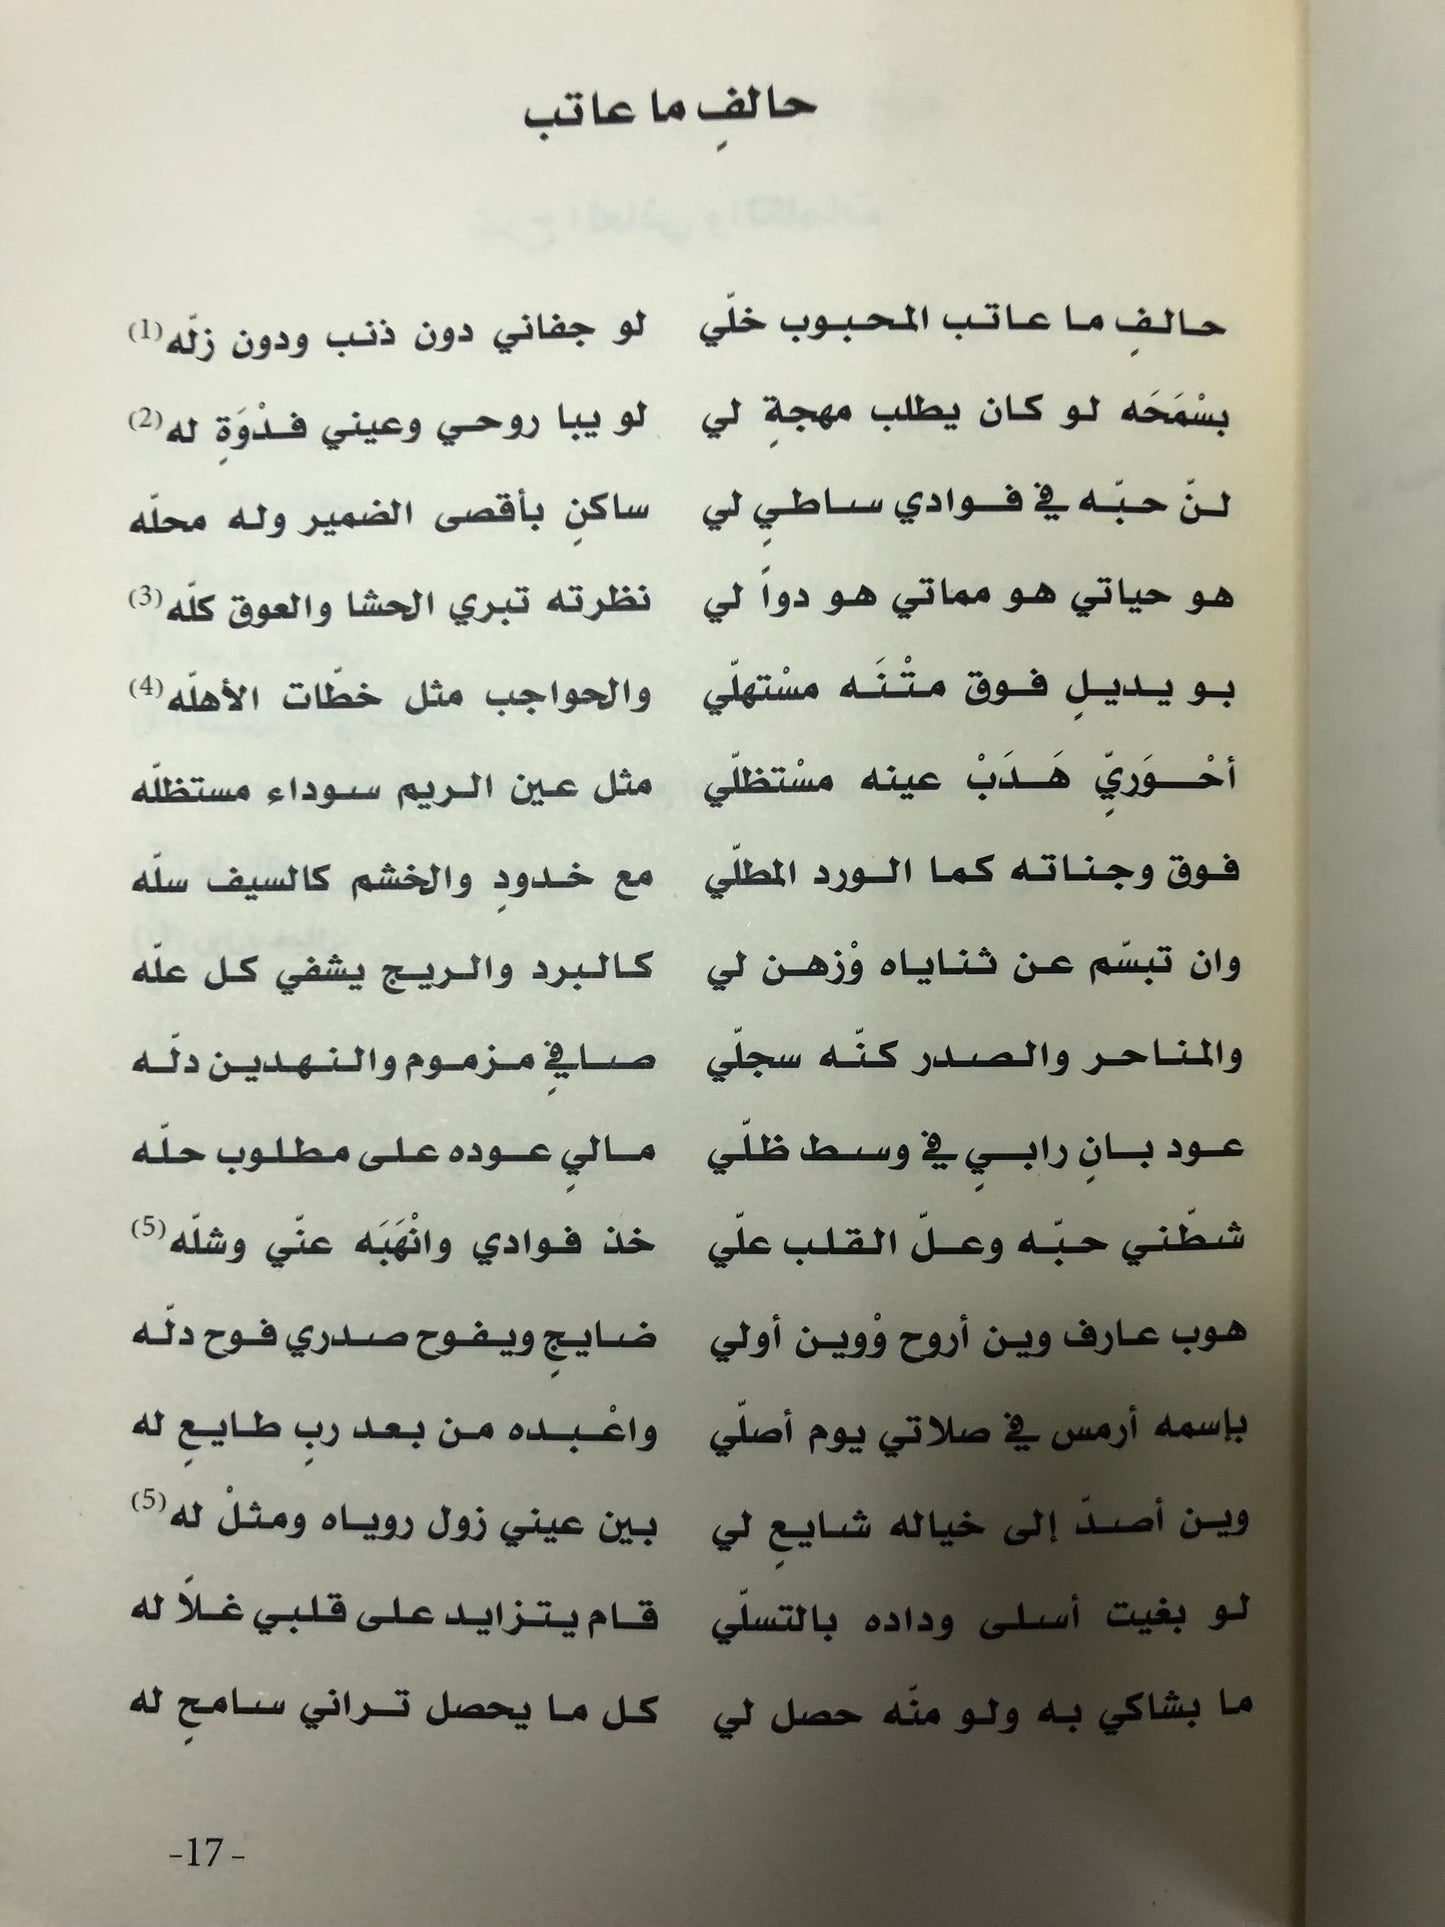 حالفٍ ما عاتب
حالفٍ ما عاتب المحبوب خلّي لو جفاني دون ذنب ودون زلّه (1)
بسْمَحَه لو كان يطلب مهجةٍ لي لو يبا روحي وعيني فدْوَةٍ له (2)
لنّ حبّه في فوادي ساطيٍ لي ساكنٍ بأقصى الضمير وله محلّه
هو حياتي هو مماتي هو دواً لي نظرته تبري الحشا والعوق كلّه (3)
بو يديلٍ فوق متْنَه مسْتهلّي والحواجب مثل خطّات الأهلّه (4)
أحْوَريٍّ هَدَبْ عينه مسْتظلّي مثل عين الريم سوداء مستظلّه
فوق وجناته كما الورد المطلّي مع خدودٍ والخشم كالسيف سلّه
وان تبسّم عن ثناياه وْزهن لي كالبرد والريج يشفي كل علّه
والمناحر والصدر كنّه سجلّي صافيٍ مزموم والنهدين دلّه
عود بانٍ رابيٍ في وسط ظلّي ماليٍ عوده على مطلوب حلّه
شطّني حبّه وعلّ القلب علّي خذ فوادي وانْهَبَه عنّي وشلّه (5)
هوب عارف وين أروح وْوين أولي ضايجٍ ويفوح صدري فوح دلّه
بإسمه أرمس في صلاتي يوم أصلّي واعْبده من بعد ربٍ طايعٍ له
وين أصدّ إلى خياله شايعٍ لي بين عيني زول روياه ومثلْ له (5)
لو بغيت أسلى وداده بالتسلّي قام يتزايد على قلبي غلاً له
ما بشاكي به ولو منّه حصل لي كل ما يحصل تراني سامحٍ له
-17-